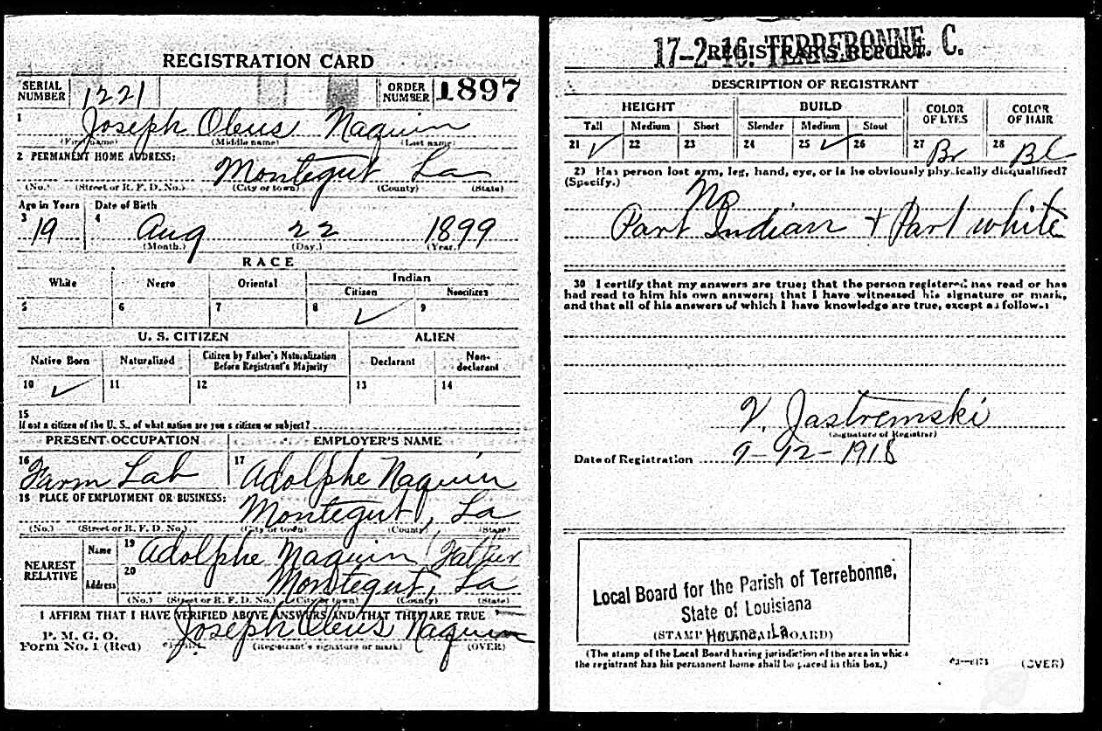 REGISTRATION CARD
SERIAL NUMBER 1221 ORDER NUMBER 1897
1 Joseph Oleus Naquin
(First name) (Middle name) (Last name)
2 PERMANENT HOME ADDRESS:
Montegut La
(No.) (Street or R. F. D. No.) (City or town) (County) (State)
Age in Years Date of Birth
3 19 4 Aug 22 1899
(Month.) (Day.) (Year.)
RACE
White Negro Oriental Indian
Citizen Noncitizen
5 6 7 8 ✓ 9
U. S. CITIZEN ALIEN
Native Born Naturalized Citizen by Father's Naturalization Before Registrant's Majority Declarant Non-declarant
10 ✓ 11 12 13 14
15
If not a citizen of the U. S., of what nation are you a citizen or subject?
PRESENT OCCUPATION EMPLOYER'S NAME
16 Farm Lab 17 Adolphe Naquin
18 PLACE OF EMPLOYMENT OR BUSINESS:
Montegut, La
(No.) (Street or R. F. D. No.) (City or town) (County) (State)
NEAREST RELATIVE Name 19 Adolphe Naquin (Father
Address 20 Montegut, La
(No.) (Street or R. F. D. No.) (City or town) (County) (State)
I AFFIRM THAT I HAVE VERIFIED ABOVE ANSWERS AND THAT THEY ARE TRUE
P. M. G. O.
Form No. 1 (Red) Joseph Oleus Naquin
(Registrant's signature or mark) (OVER)
REGISTRAR'S REPORT
17-2-16. TERREBONNE. C.
DESCRIPTION OF REGISTRANT
HEIGHT BUILD COLOR OF EYES COLOR OF HAIR
Tall Medium Short Slender Medium Stout
21 ✓ 22 23 24 25 ✓ 26 27 Br 28 Bl
29 Has person lost arm, leg, hand, eye, or is he obviously physically disqualified?
(Specify.) No
Part Indian + Part white
30 I certify that my answers are true; that the person registered has read or has
had read to him his own answers; that I have witnessed his signature or mark,
and that all of his answers of which I have knowledge are true, except as follows:
V. Jastremski
(Signature of Registrar)
Date of Registration 9-12-1918
Local Board for the Parish of Terrebonne,
State of Louisiana
Houma, La
(STAMP OF LOCAL BOARD)
(The stamp of the Local Board having jurisdiction of the area in which
the registrant has his permanent home shall be placed in this box.)
(OVER)